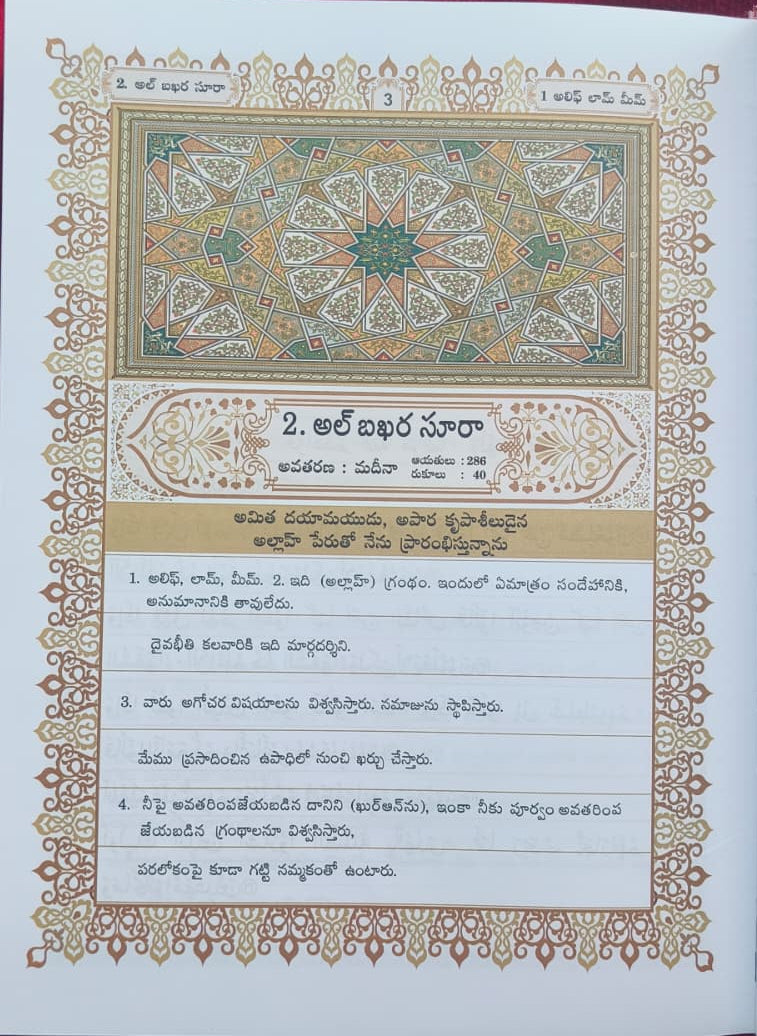 2. అల్ బఖర సూరా
3
1 అలిఫ్ లామ్ మీమ్
2. అల్ బఖర సూరా
అవతరణ : మదీనా ఆయతులు : 286
రుకూలు : 40
అమిత దయామయుడు, అపార కృపాశీలుడైన
అల్లాహ్ పేరుతో నేను ప్రారంభిస్తున్నాను
1. అలిఫ్, లామ్, మీమ్. 2. ఇది (అల్లాహ్) గ్రంథం. ఇందులో ఏమాత్రం సందేహానికి,
అనుమానానికి తావులేదు.
దైవభీతి కలవారికి ఇది మార్గదర్శిని.
3. వారు అగోచర విషయాలను విశ్వసిస్తారు. నమాజును స్థాపిస్తారు.
మేము ప్రసాదించిన ఉపాధిలో నుంచి ఖర్చు చేస్తారు.
4. నీపై అవతరింపజేయబడిన దానిని (ఖుర్ఆన్‌ను), ఇంకా నీకు పూర్వం అవతరింప
జేయబడిన గ్రంథాలనూ విశ్వసిస్తారు,
పరలోకంపై కూడా గట్టి నమ్మకంతో ఉంటారు.